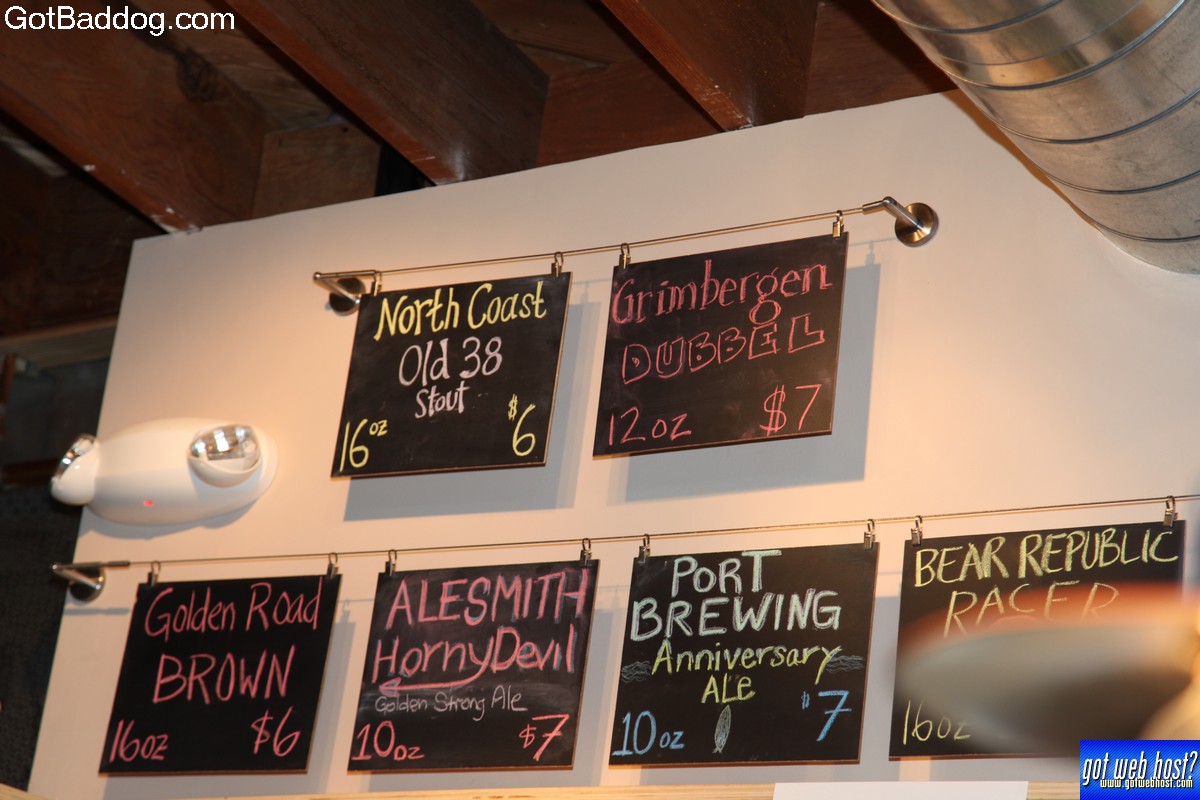 GotBaddog.com
North Coast
Old 38
Stout
16oz
$6
Grimbergen
DUBBEL
12oz
$7
Golden Road
BROWN
16oz
$6
ALESMITH
HornyDevil
Golden Strong Ale
10oz
$7
PORT
BREWING
Anniversary
ALe
10oz
$7
BEAR REPUBLIC
RACER
16oz
got web host?
www.gotwebhost.com